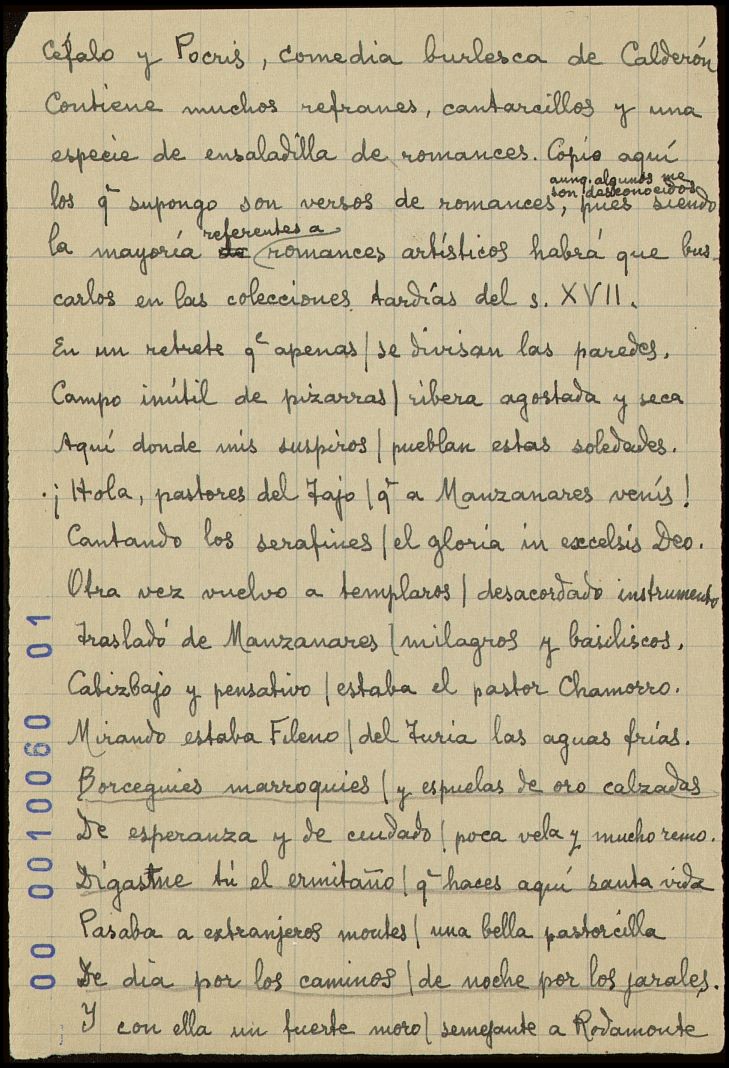 Céfalo y Pocris, comedia burlesca de Calderón
Contiene muchos refranes, cantarcillos y una
especie de ensaladilla de romances. Copio aquí
aunq. algunos me
son desconocidos
los qe supongo son versos de romances, pues siendo
referentes a
la mayoría de romances artísticos habrá que bus-
carlos en las colecciones tardías del s. XVII.
En un retrete qe apenas | se divisan las paredes.
Campo inútil de pizarras | ribera agostada y seca
Aquí donde mis suspiros | pueblan estas soledades.
¡Hola, pastores del Tajo | qe a Manzanares venís!
Cantando los serafines | el gloria in excelsis Deo.
Otra vez vuelvo a templaros | desacordado instrumento
Trasladó de Manzanares | milagros y basiliscos.
Cabizbajo y pensativo | estaba el pastor Chamorro.
Mirando estaba Fileno | del Turia las aguas frías.
Borceguies marroquies | y espuelas de oro calzadas
De esperanza y de cuidado | poca vela y mucho remo.
Dígasme tú el ermitaño | qe haces aquí santa vida
Pasaba a extranjeros montes | una bella pastorcilla
De dia por los caminos | de noche por los jarales.
Y con ella un fuerte moro | semejante a Rodamonte
00 0010060 01